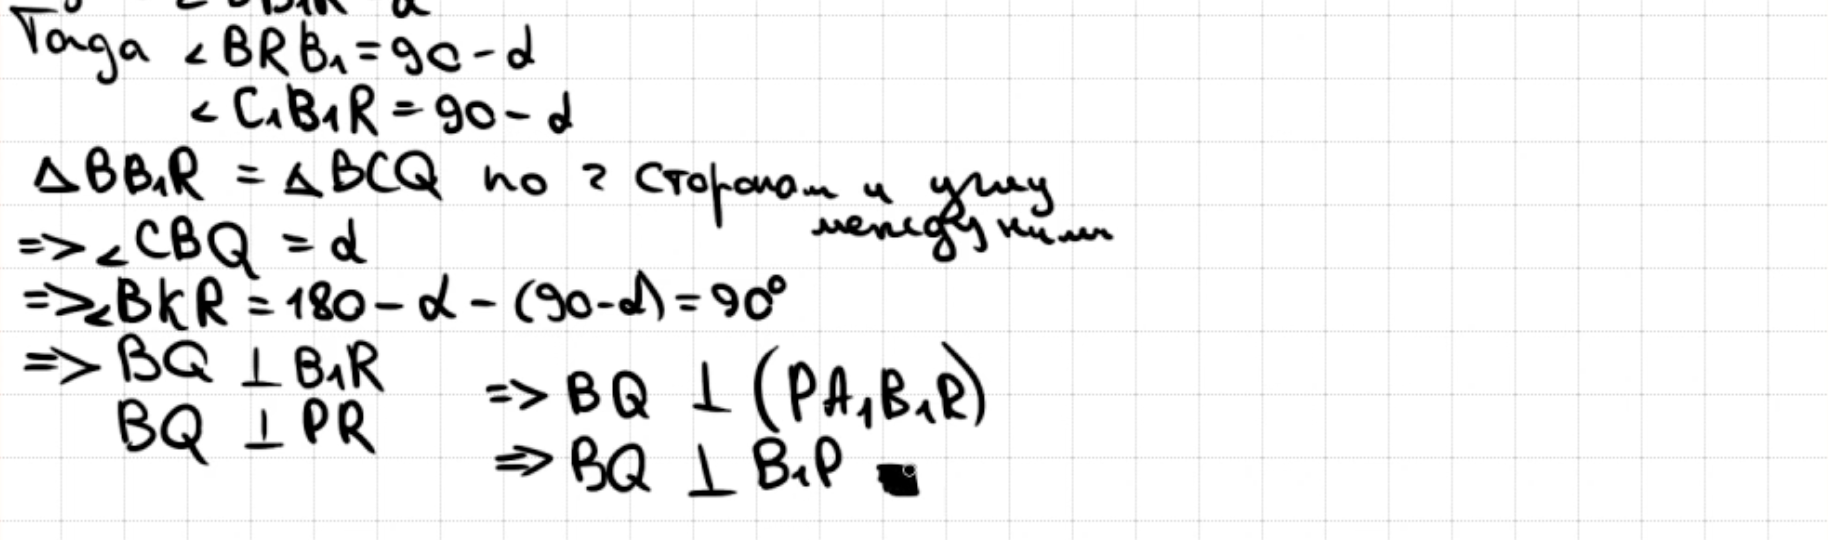 Тогда ∠BRB₁ = 90 - α
∠C₁B₁R = 90 - α
△BB₁R = △BCQ по 2 сторонам и углу
между ними
=> ∠CBQ = α
=> ∠BKR = 180 - α - (90 - α) = 90°
=> BQ ⊥ B₁R
BQ ⊥ PR
=> BQ ⊥ (PA₁B₁R)
=> BQ ⊥ B₁P ■